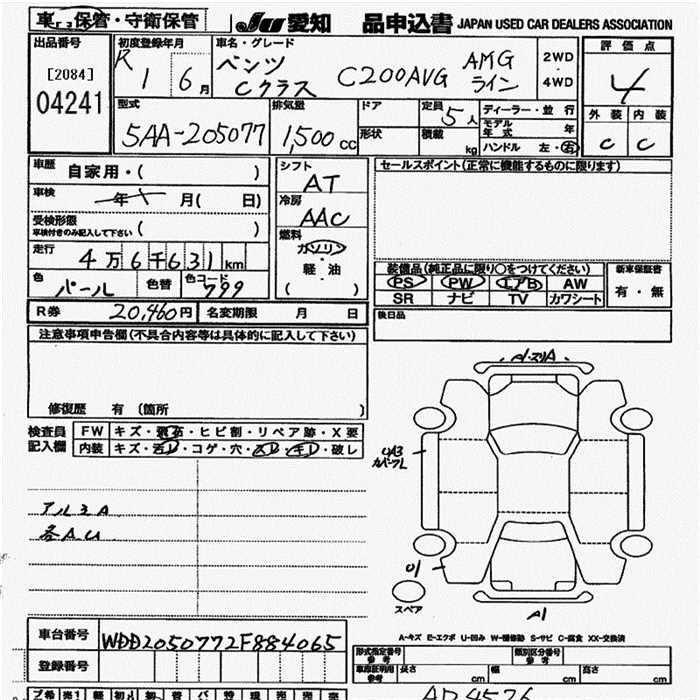 車 保管・守衛保管 JU 愛知 品申込書 JAPAN USED CAR DEALERS ASSOCIATION
出品番号
[2084]
04241
初度登録年月
R 1 6月
車名・グレード
ベンツ
Cクラス C200AVG AMG
ライン
2WD
4WD
評価点
4
外装 内装
C C
型式
5AA-205077
排気量
1,500 CC
ドア
形状
定員 5人
積載 kg
ディーラー・並行
モデル年式 年
ハンドル 左・右
車歴 自家用・( )
車検 年 月( 日)
受検形態
車検付きのみ記入して下さい ( )
走行 4万6千631km
色 パール 色替 色コード 799
シフト
AT
冷房
AAC
燃料
ガソリン
軽・油
( )
セールスポイント(正常に機能するものに限ります)
装備品(純正品に限り○をつけてください)
PS PW エアB AW
SR ナビ TV カワシート
新車保証書
有・無
R券 20,460円 名変期限 月 日
後日品
注意事項申告欄(不具合内容等は具体的に記入して下さい)
修復歴 有 (箇所 )
検査員
記入欄
FW キズ・飛石・ヒビ割・リペア跡・X要
内装 キズ・汚レ・コゲ・穴・スレ・キレ・破レ
アルミA
各AU
スペア
A1
A-キズ E-エクボ U-凹み W-補修跡 S-サビ C-腐食 XX-交換済
車台番号 WDD2050772F884065
登録番号
形式指定番号
参考
類別区分番号
参考
車庫証明用
参考
長さ cm 幅 cm 高さ cm